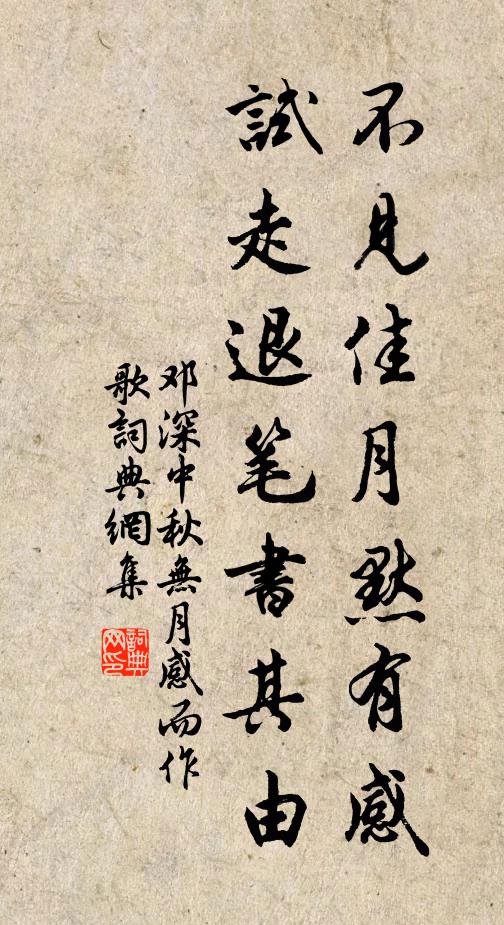 不見佳月默有感
試走退笔書其由
邓深中秋無月感而作
歌詞典網集
詞典網印